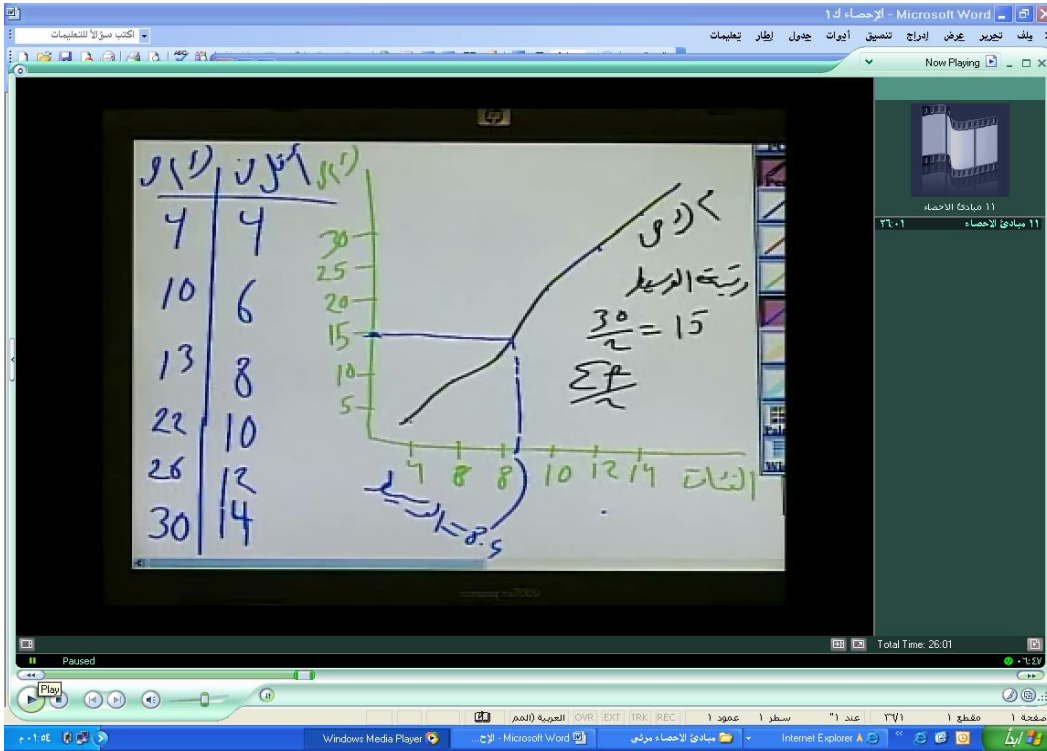 الإحصاء ك١ - Microsoft Word
ملف تحرير عرض إدراج تنسيق أدوات جدول إطار تعليمات
اكتب سؤالاً للتعليمات
Now Playing
hp
١١ مبادئ الاحصاء
١١ مبادئ الاحصاء ٢٦:٠١
أقل من
4 4
10 6
13 8
22 10
26 12
30 14
30
25
20
15
10
5
4 8 8 10 12 14 الفئات
رتبة الوسيط
30/2 = 15
Σf/2
الوسيط = 8.5
Total Time: 26:01
Paused
٠٦:٤٧
Play
صفحة ١ مقطع ١ ٣٦/١ عند ١" سطر ١ عمود ١ REC TRK EXT OVR العربية (المم
ابدأ
Internet Explorer
مبادئ الاحصاء مرئي
الإح... - Microsoft Word
Windows Media Player
٠١:٥٤ م